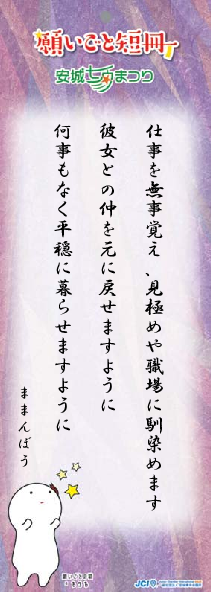 願いごと短冊
安城七夕まつり
仕事を無事覚え、見極めや職場に馴染めます
彼女との仲を元に戻せますように
何事もなく平穏に暮らせますように
ままんぼう
JCI